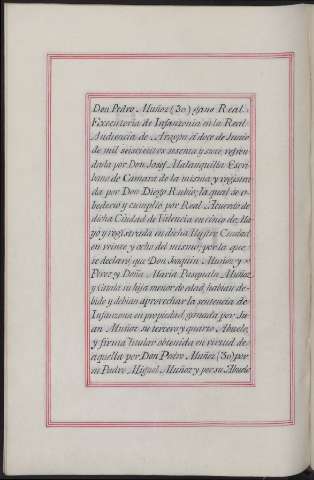 Don Pedro Muñoz (30) gano Real
Executoria de Infanzonia en la Real
Audiencia de Aragon à doce de Junio
de mil seiscientos y nueve, refren
dada por Don Josef Malanquilla Escri
bano de Camara de la misma y registra
da por Don Diego Rubio; la qual se o-
bedecio y cumplio por Real Acuerdo de
dicha Ciudad de Valencia en cinco de Ma
yo y registrada en dicha Ilustre Ciudad
en veinte y ocho del mismo; por la que
se declaró, que Don Joaquin Muñoz y
Perez y Doña Maria Pasquala Muñoz
y Catalá su hija menor de edad, habian de-
bido y debian aprovechar la sentencia de
Infanzona en propiedad, ganada por Ju-
an Muñoz su tercero y quarto Abuelo,
y firma titular obtenida en virtud de
aquella por Don Pedro Muñoz (30) por
su Padre Miguel Muñoz y por su Abuelo